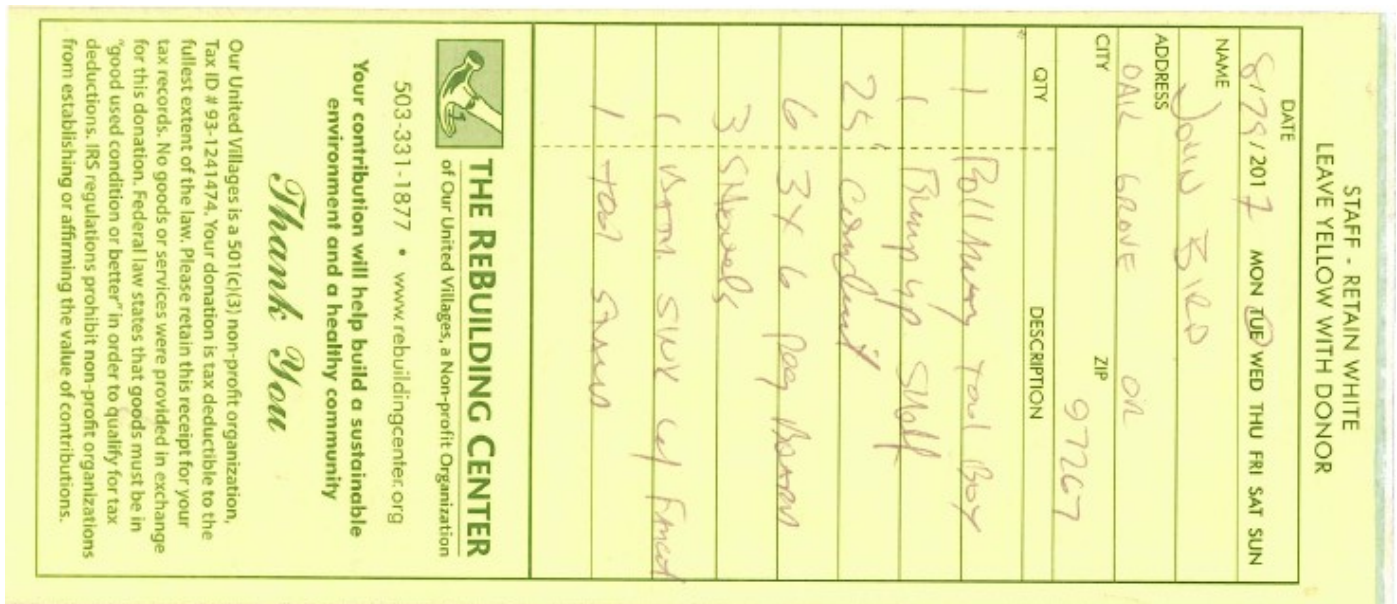 STAFF - RETAIN WHITE
LEAVE YELLOW WITH DONOR
DATE 8/29/2017 MON TUE WED THU FRI SAT SUN
NAME John BIRD
ADDRESS
CITY OAK GROVE OR ZIP 97267
QTY DESCRIPTION
1 Roll Away Tool Box
1 Bump up Shelf
25' Conduit
6 3x6 Peg Board
3 Shovels
1 Bath. Sink w/ Faucet
1 Tool
THE REBUILDING CENTER
of Our United Villages, a Non-profit Organization
503-331-1877 • www.rebuildingcenter.org
Your contribution will help build a sustainable
environment and a healthy community
Thank You
Our United Villages is a 501(c)(3) non-profit organization,
Tax ID # 93-1241474. Your donation is tax deductible to the
fullest extent of the law. Please retain this receipt for your
tax records. No goods or services were provided in exchange
for this donation. Federal law states that goods must be in
"good used condition or better" in order to qualify for tax
deductions. IRS regulations prohibit non-profit organizations
from establishing or affirming the value of contributions.